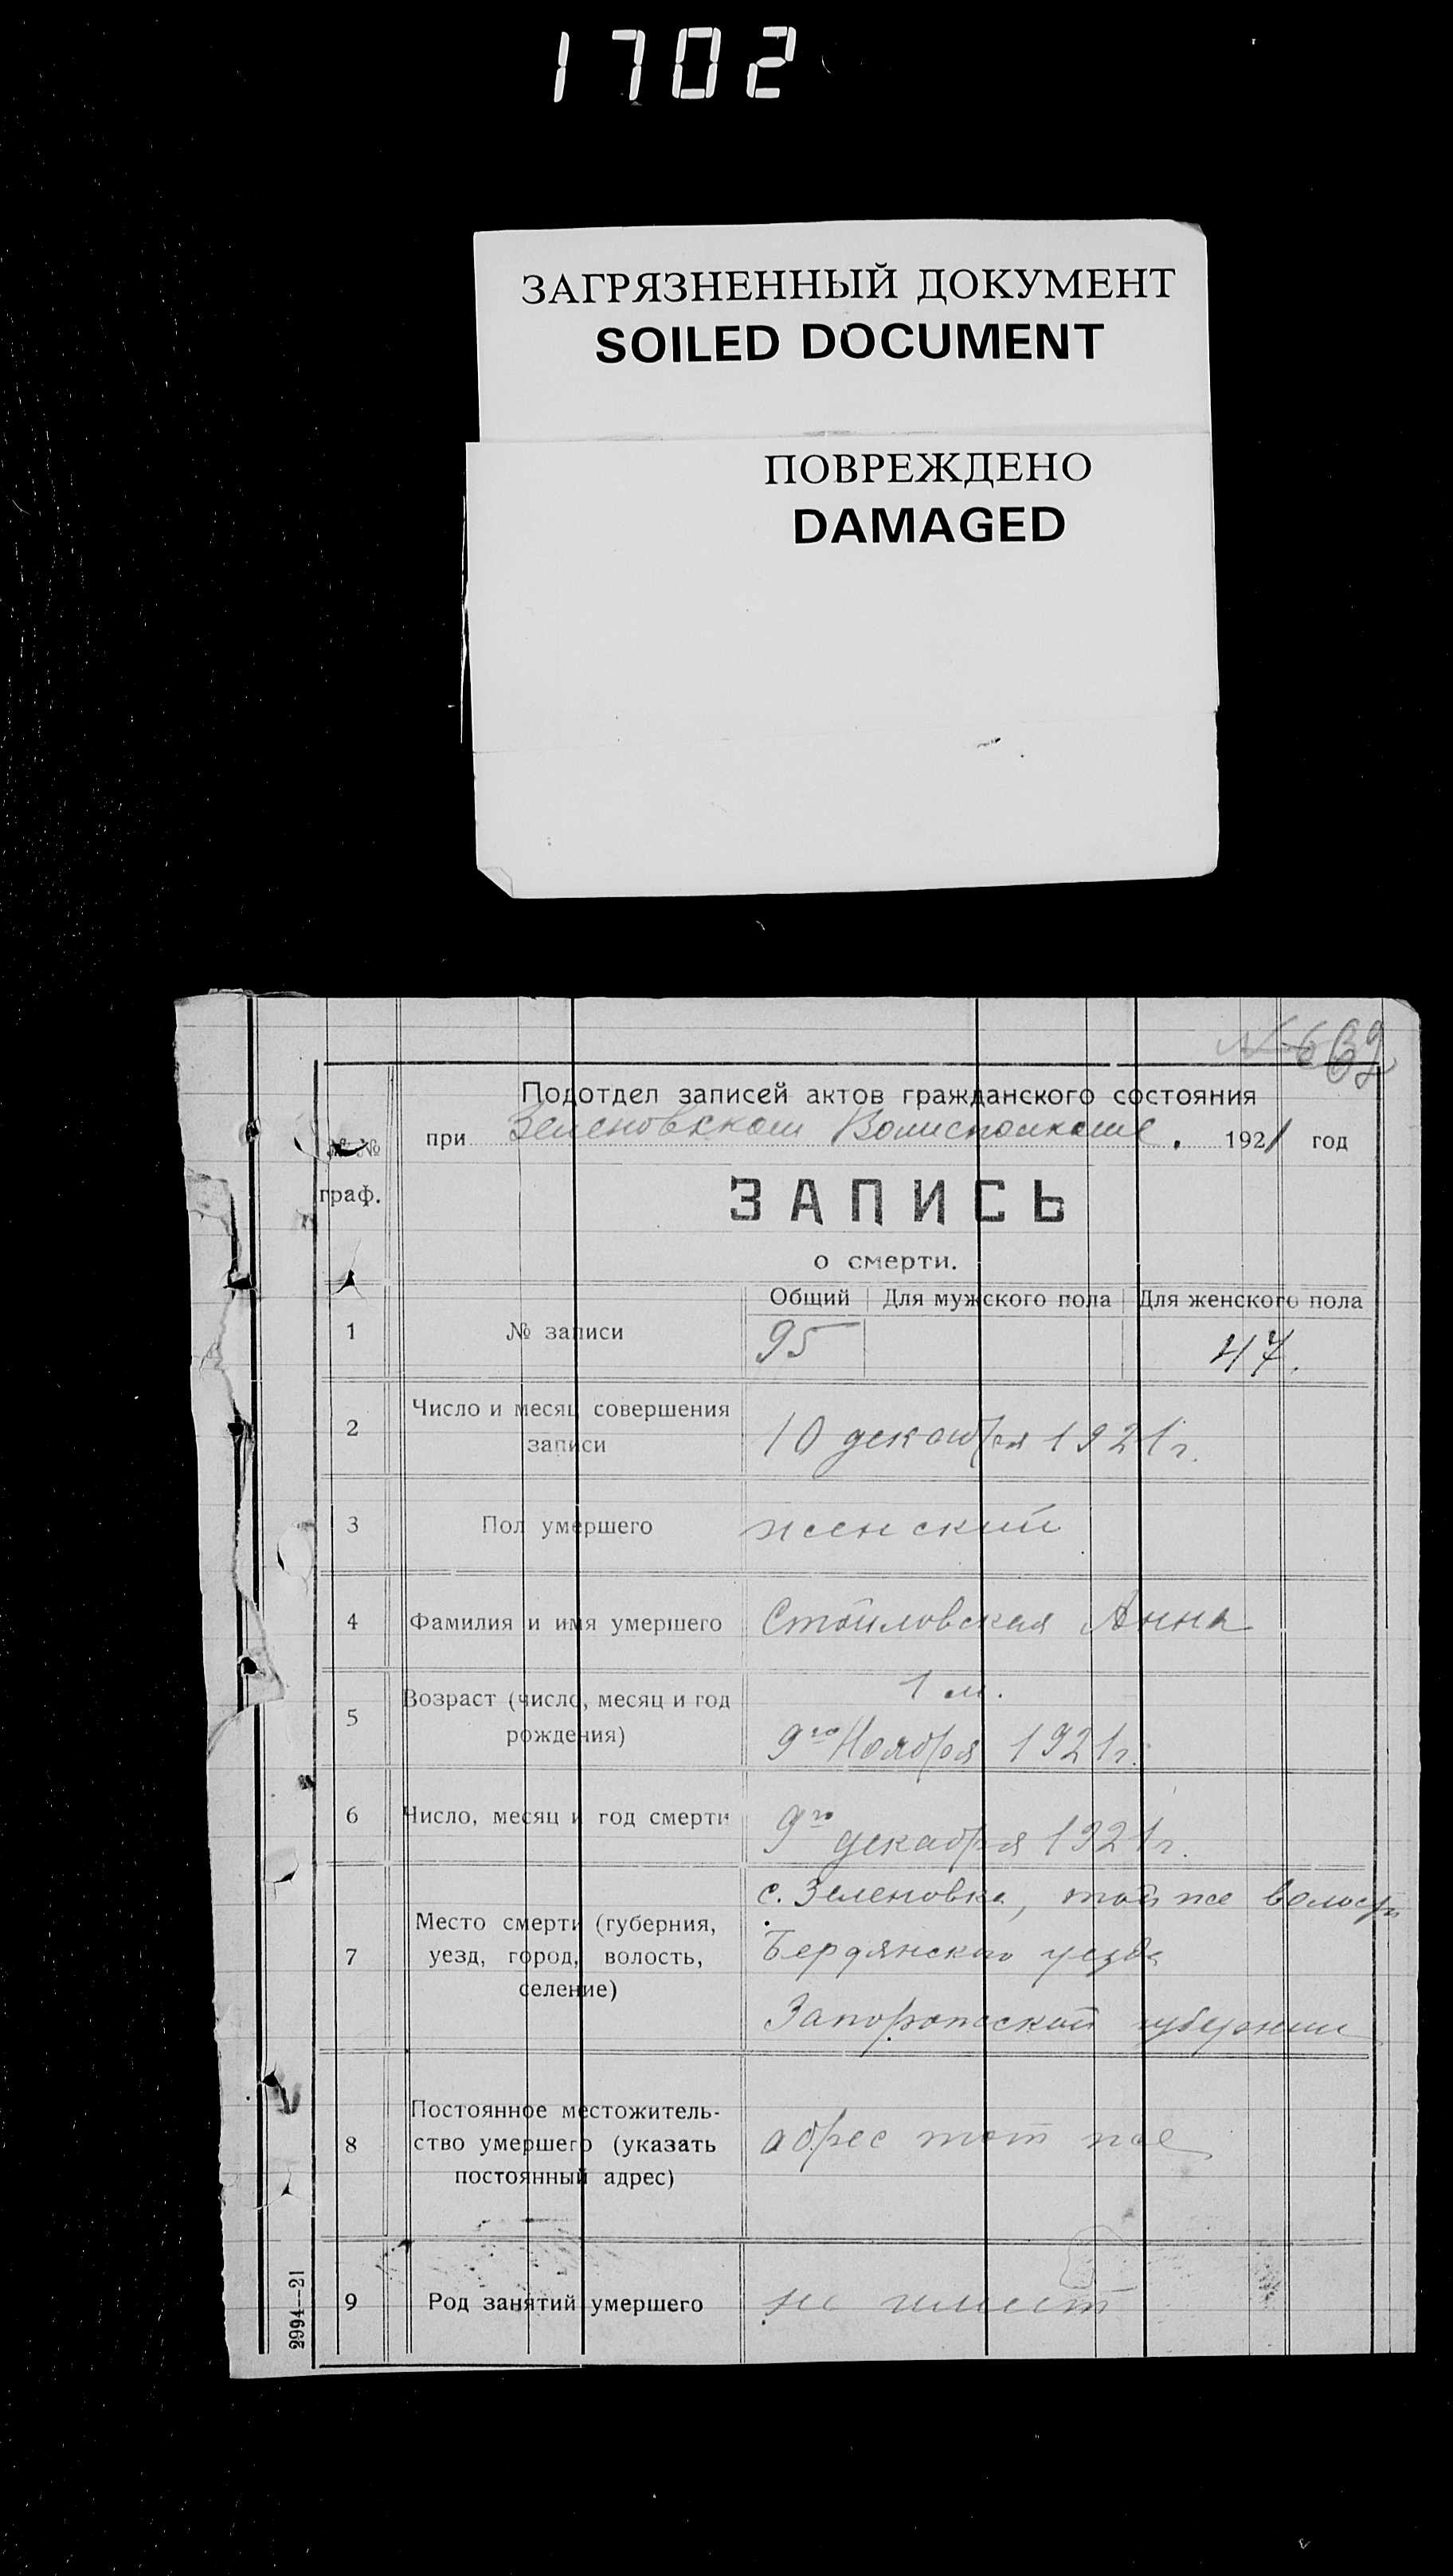 1702
ЗАГРЯЗНЕННЫЙ ДОКУМЕНТ
SOILED DOCUMENT
ПОВРЕЖДЕНО
DAMAGED
Подотдел записей актов гражданского состояния
при Зеленовском Волисполкоме. 1921 год
№№
граф.
ЗАПИСЬ
о смерти.
Общий Для мужского пола Для женского пола
1 № записи 95 47.
2 Число и месяц совершения
записи
10 декабря 1921 г.
3 Пол умершего женский
4 Фамилия и имя умершего Стойловская Анна
5 Возраст (число, месяц и год
рождения)
1 м.
9го Ноября 1921 г.
6 Число, месяц и год смерти 9го декабря 1921 г.
7 Место смерти (губерния,
уезд, город, волость,
селение)
с. Зеленовка, той же волости
Бердянского уезда
Запорожской губернии
8 Постоянное местожитель-
ство умершего (указать
постоянный адрес)
адрес тот же
9 Род занятий умершего не имеет
2994--21